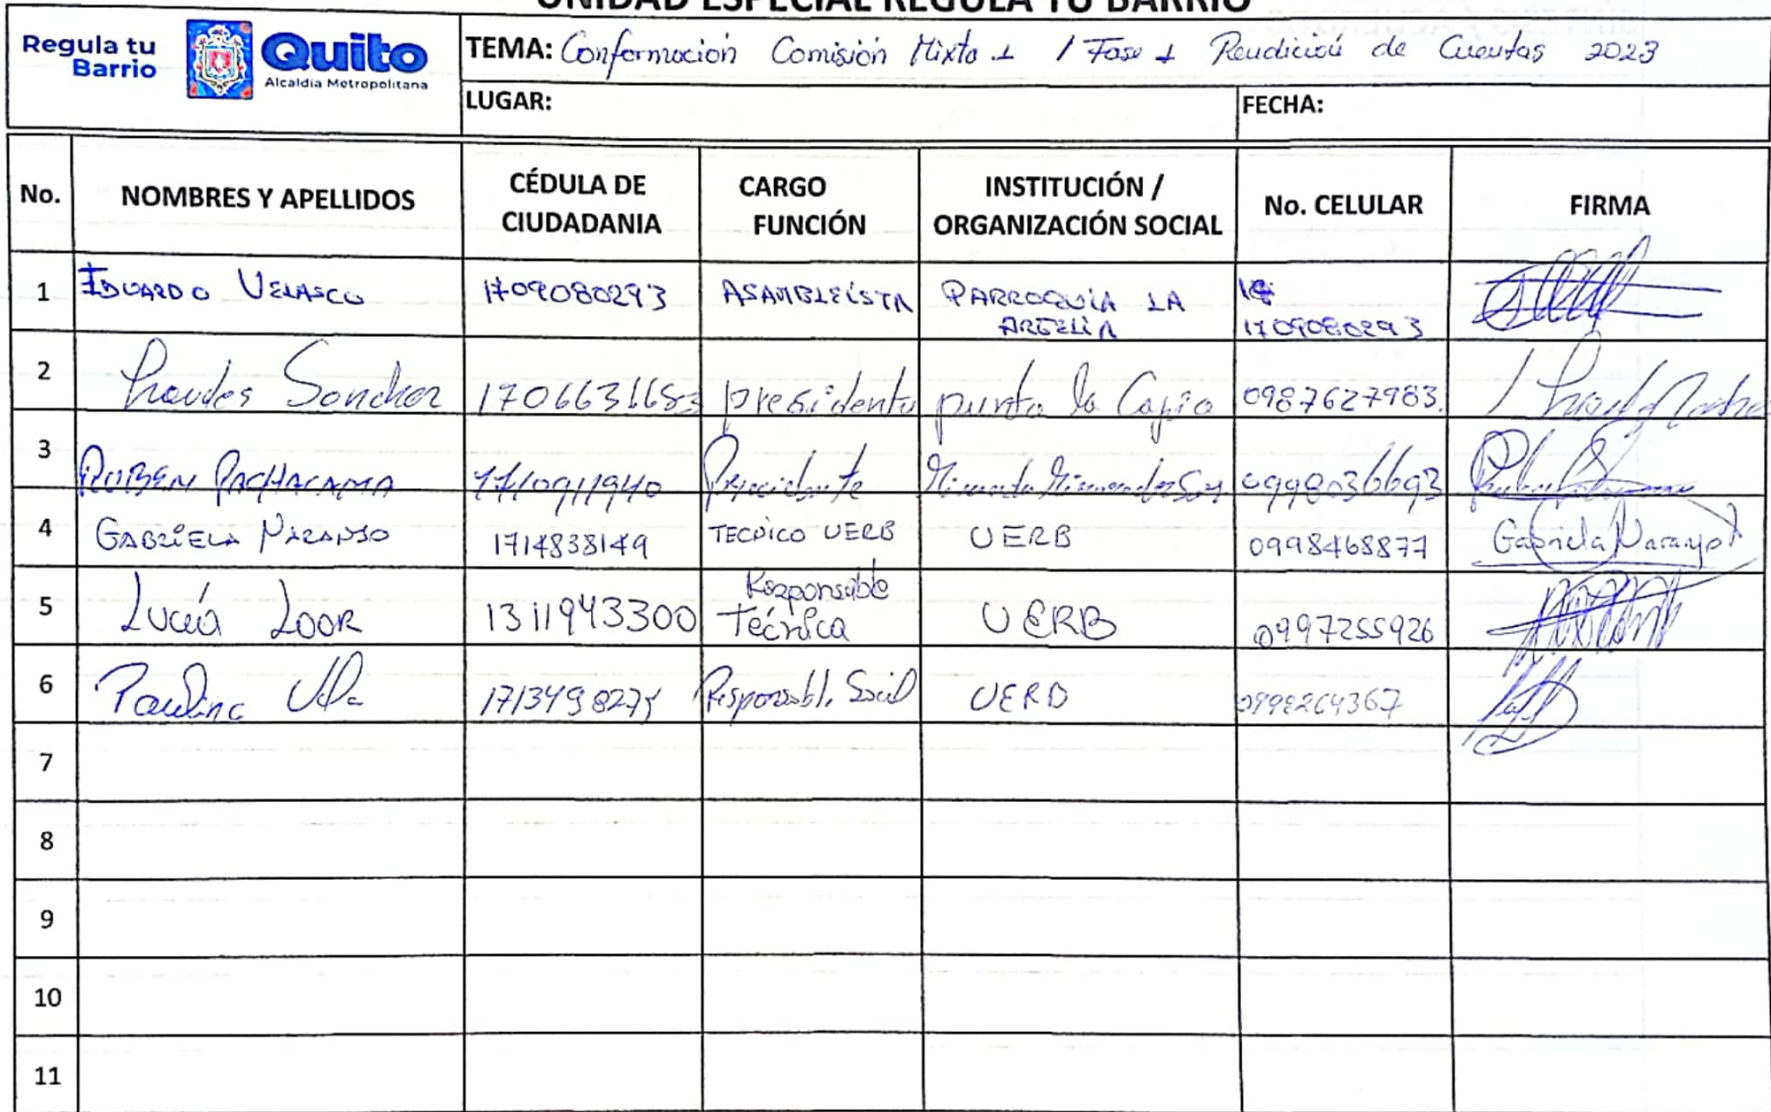 UNIDAD ESPECIAL REGULA TU BARRIO
Regula tu Barrio
Quito
Alcaldía Metropolitana
TEMA: Conformación Comisión Mixta 1 / Fase 1 Rendición de Cuentas 2023
LUGAR: FECHA:
No. NOMBRES Y APELLIDOS CÉDULA DE CIUDADANIA CARGO FUNCIÓN INSTITUCIÓN / ORGANIZACIÓN SOCIAL No. CELULAR FIRMA
1 EDUARDO VELASCO 1709080293 ASAMBLEÍSTA PARROQUIA LA ARGELIA 1709080293
2 Lourdes Sanchez 1706631653 presidenta punta la Capia 0987627983
3 RUBEN PACHACAMA 1710911940 Precidente 0998036693
4 GABRIELA NARANJO 1714838149 TECNICO UERB UERB 0998468877 Gabriela Naranjo
5 Lucía LOOR 1311943300 Responsable Técnica UERB 0997255926
6 Paulina 171349827 Responsabl. Social UERB 0998264367
7
8
9
10
11